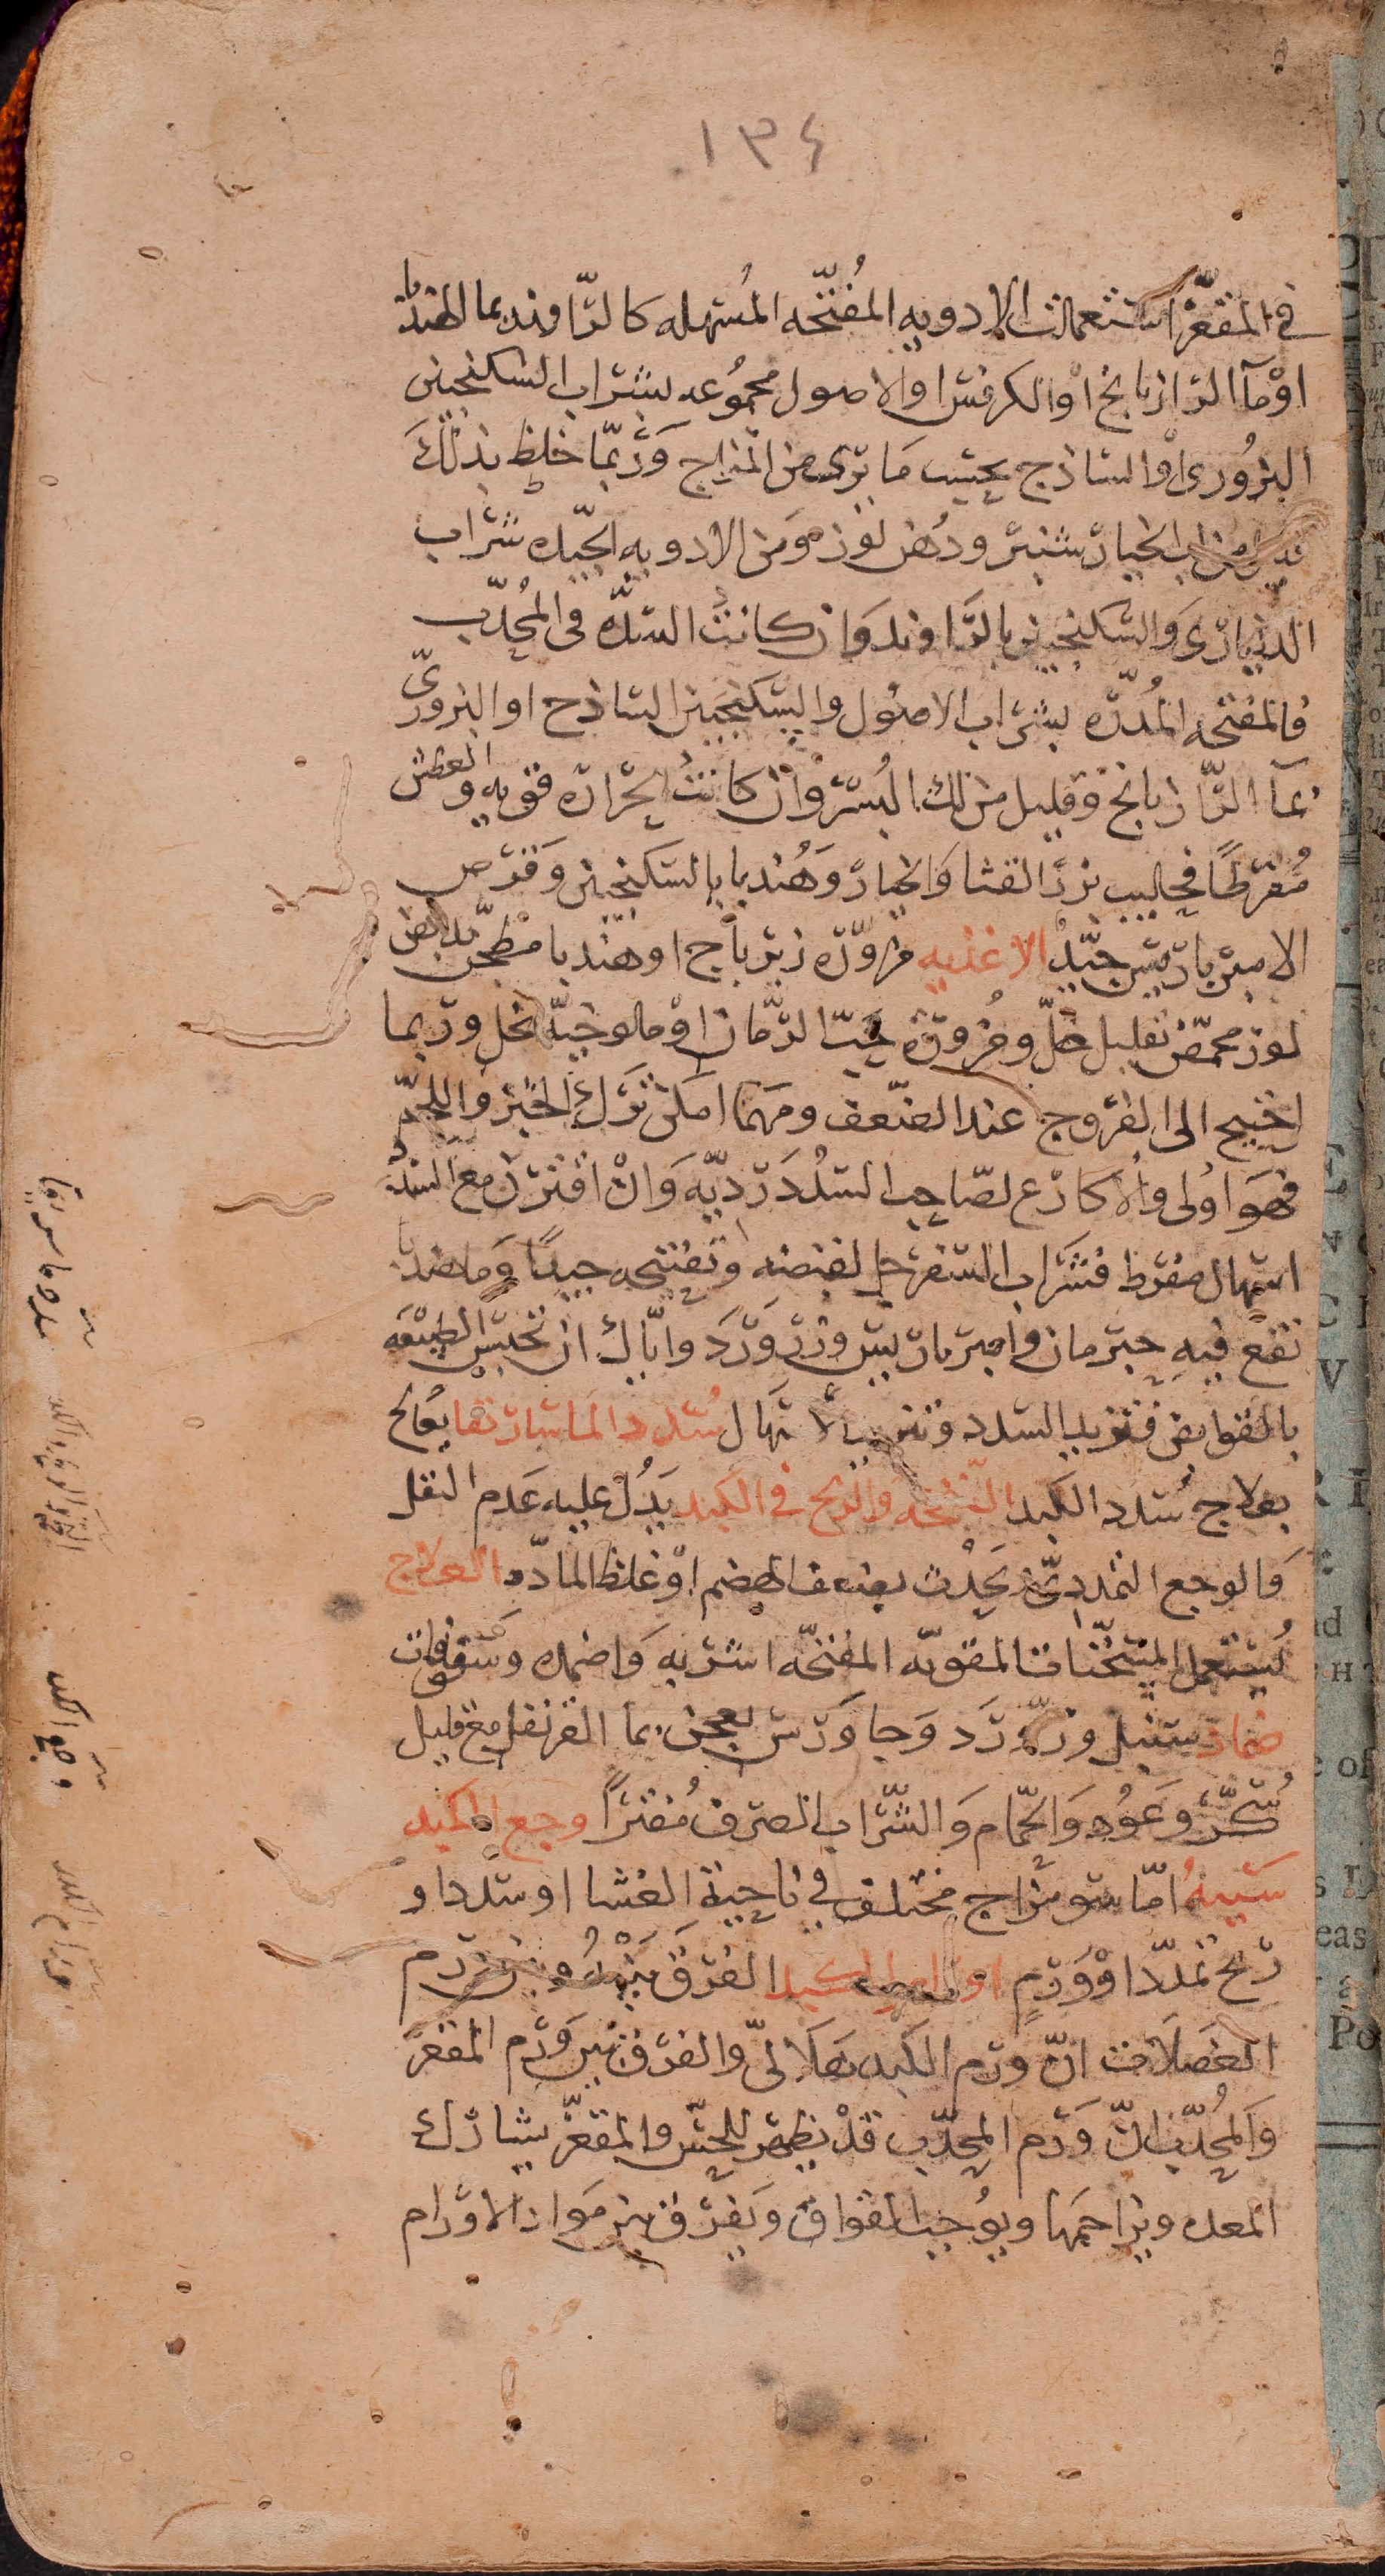 ١٣٤
في المقعّر استعملت الادويه المُفتّحه المُسهله كالرّاوند بما الهندبا
اوْ مآ الرّازيانج اوْ الكرفس او الاصول مجمُوعه بشراب السكنجبين
البزُورى اوْ الساذج بحسب مَا يرى من المزاج وَرُبّما خلط بذلكَ
الخيار شنبر ودُهن لوز وَمن الادويه الجيّده شراب
الديناري وَالسكنجبين بالرّاوند وَان كانت السدّه فى المُحدّب
فالمفتحه المُدرّه بشراب الاصُول والسّكنجبين الساذج او البزوريّ
بمآ الرّازيانج وقليل من لك البُسر وَان كانتُ الحرّاره قويه والعطش
مُفرطًا فحليب بزر القثا وَالخيار وَهُندبا بالسكنجبين وَقرص
الامبرباريس جيّدٌ الاغذيه مزوّره زيرباج او هندبا مطجّن بدهن
لوز محمّض بقليل خلّ ومُزورة حبّ الرّمان اوْ مالوخيّه بخل وربما
احتيج الى الفرّوج عند الضعف ومَهما امكن ترَك الخبز واللحم
فهوَ اوُلى والاكارع لصاحب السُدَد رَديّه وَانْ اقترن مع السدد
اسهال مفرط فشَراب السفرجل لقبضه وتفتيحه جيدًا وَما هندبا
نقع فيهِ حبّرمان وامبرباريس وزرّ وَرَد وايّاك ان تحبس الطبيْعَه
بالقوابض فتزيد السدد وتزيد الاسهال سُدد الماساريقا يعَالج
بعلاج سُدد الكبد النفخه والريح في الكبد يَدُل عليه عَدم الثقل
وَالوجع التمدديّ يَحدُث بضعف الهضم اوْ غلظ المادّه العلاج
يُستعمل المسخّنات المقويّه المفتحّه اشربه وَاضمده وَسفوفات
ضماد سنبل وزرّ وَرَد وَجاوَرس يعجن بما القرنفل مع قليل
سُكّر وعَوُد وَالحمّام وَالشّراب الصرف مُفترًا وجع الكبد
سَببهُ امّا سو مزاج مختلف في ناحية الغشا او سدد او
رَيح تمدّد اوْ وَرَمٍ اورام الكبد الفرَق بَيْنهُ وبين وَرم
العضلات انّ ورم الكبد هلاليّ والفرق بين وَرم المقعّر
وَالمُحدّب انّ وَرَم المحدّب قدْ يظهر للحسّ والمقعّر يشارك
المعده ويزاحمَها ويوُجب الفواق وَيفرق بين مَواد الاوَرام
سدد الماساريقا
النفخه والريح في الكبد
وجع الكبد
اورام الكبد